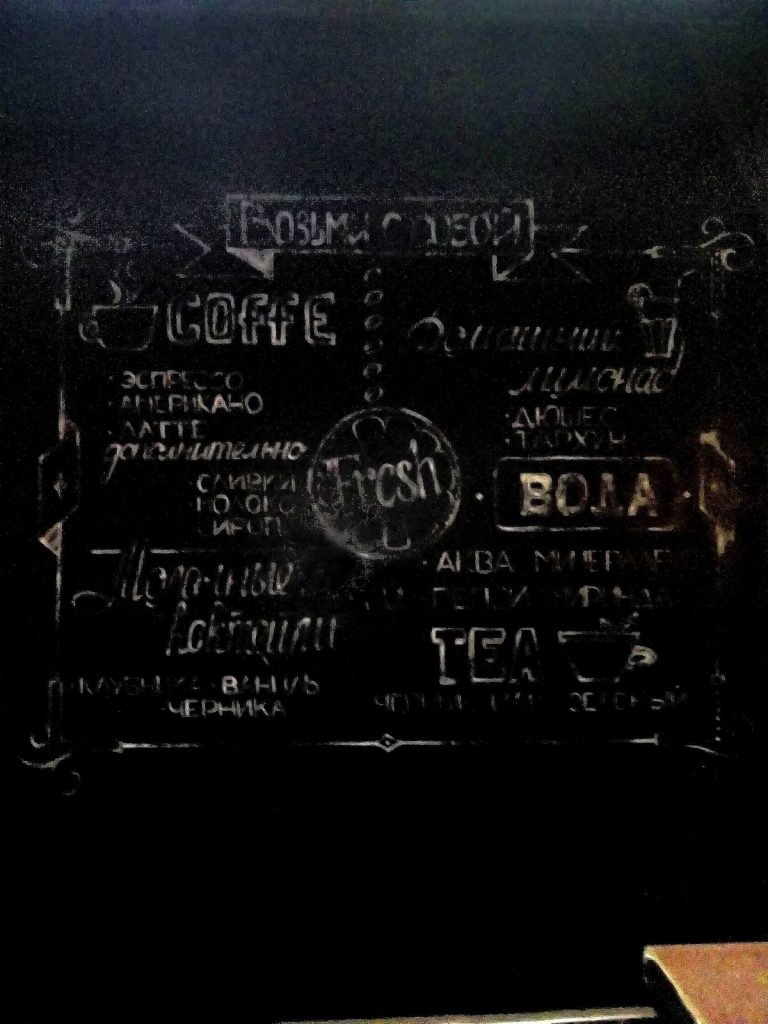 Возьми с собой
COFFE
· ЭСПРЕССО
· АМЕРИКАНО
· ЛАТТЕ
дополнительно
СЛИВКИ
МОЛОКО
СИРОП
Молочные
коктейли
· КЛУБНИКА · ВАНИЛЬ
· ЧЕРНИКА
Fresh
Домашний
лимонад
· ДЮШЕС
· ТАРХУН
· ВОДА ·
· АКВА МИНЕРАЛЕ
ПЕПСИ МИРИНДА
TEA
ЧЕРНЫЙ ЗЕЛЕНЫЙ